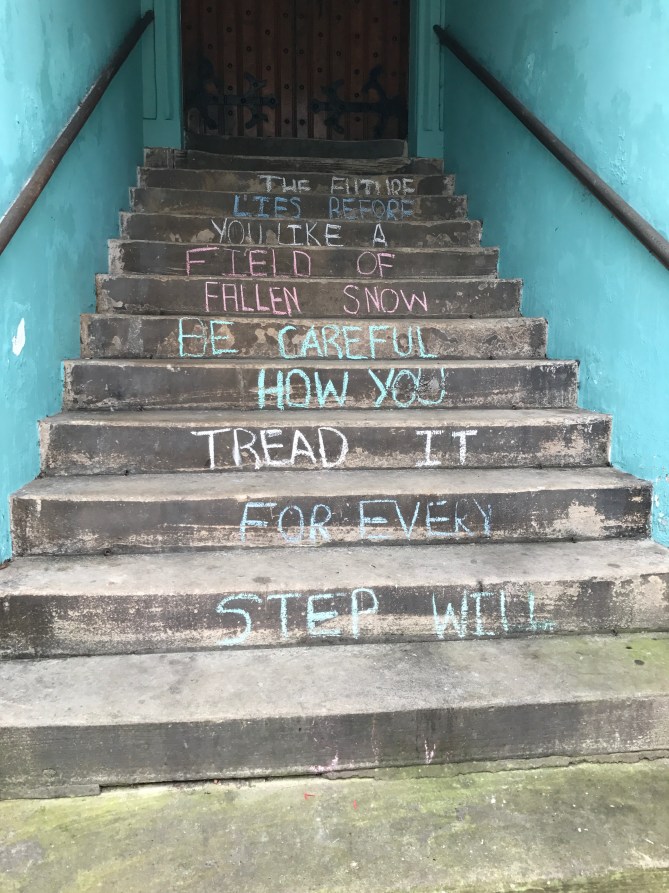 THE FUTURE
LIES BEFORE
YOU LIKE A
FIELD OF
FALLEN SNOW
BE CAREFUL
HOW YOU
TREAD IT
FOR EVERY
STEP WILL